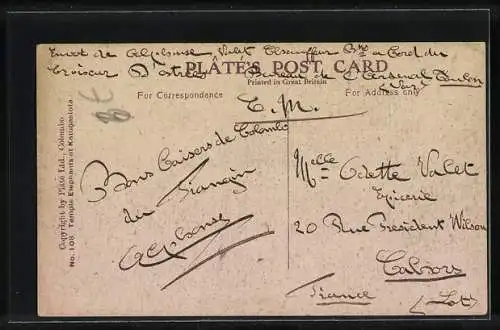 Envoi de Alphonse Valet Chauffeur Bre à bord du
Croiseur D'Estrées Bureau de l'Arsenal Toulon
Var
PLÂTÉ'S POST CARD
Printed in Great Britain
For Correspondence
For Address only
F. M.
Copyright by Plâté Ltd., Colombo.
No. 108. Temple Elephants at Katugastota.
Bons Baisers de Colombo
du
Alphonse
Melle Odette Valet
Epicerie
20 Rue President Wilson
Cahors
(Lot)
France